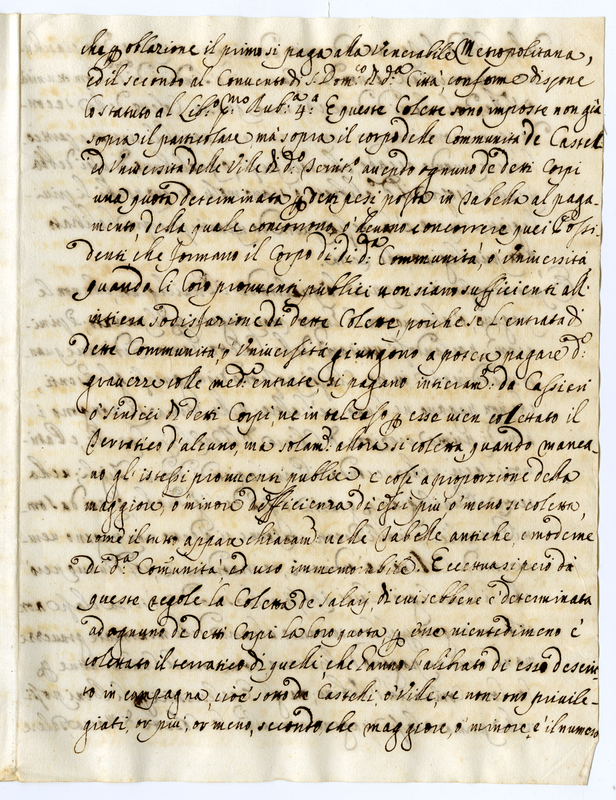 che p oblazione il primo si paga alla Venerabile Metropolitana,
ed il secondo al Convento di S. Dom.co di d.a Città, conforme dispone
lo statuto al Lib.o p.mo Rub.a 4.a E queste Colette sono imposte non già
sopra il particolare mà sopra il corpo delle Communità de Castelli
ed Università delle Ville di d.o avendo ognuno de detti Corpi
una quota determinata p detti pesi posta in Tabella al paga-
mento, della quale concorrono, ò devono concorrere quei Possi-
denti che formano il Corpo di d.a Communità, ò Università
quando li loro proventi publici non siano sufficienti all'
intiera sodisfazione di dette Colette, poiche se l'entrata di
dette Communità, ò Università giungono a poter pagare d.e
gravezze colle med.e entrate si pagano intieram.e da Cassieri
ò sindici di detti Corpi, ne in tal caso p esse vien colettato il
Terratico d'alcuno, ma solam.e allora si coletta, quando manca-
no gl'istessi proventi publici, e così a proporzione della
maggiore, ò minore defficienza di essi più ò meno si coletta,
come il tutto appare chiaram.e nelle Tabelle antiche, e moderne
di d.a Comunità, ed uso immemorabile. Eccettuasi però da
queste regole la Coletta de Salarj, di cui sebbene è determinata
ad ognuno de detti Corpi la loro quota, p esse nientedimeno è
colettato il terratico di quelli che hanno l'alibrato di esso descrit-
to in campagna, cioè sotto de Castelli ò Ville, se non sono privile-
giati, or più, or meno, secondo che maggiore, ò minore è il numero